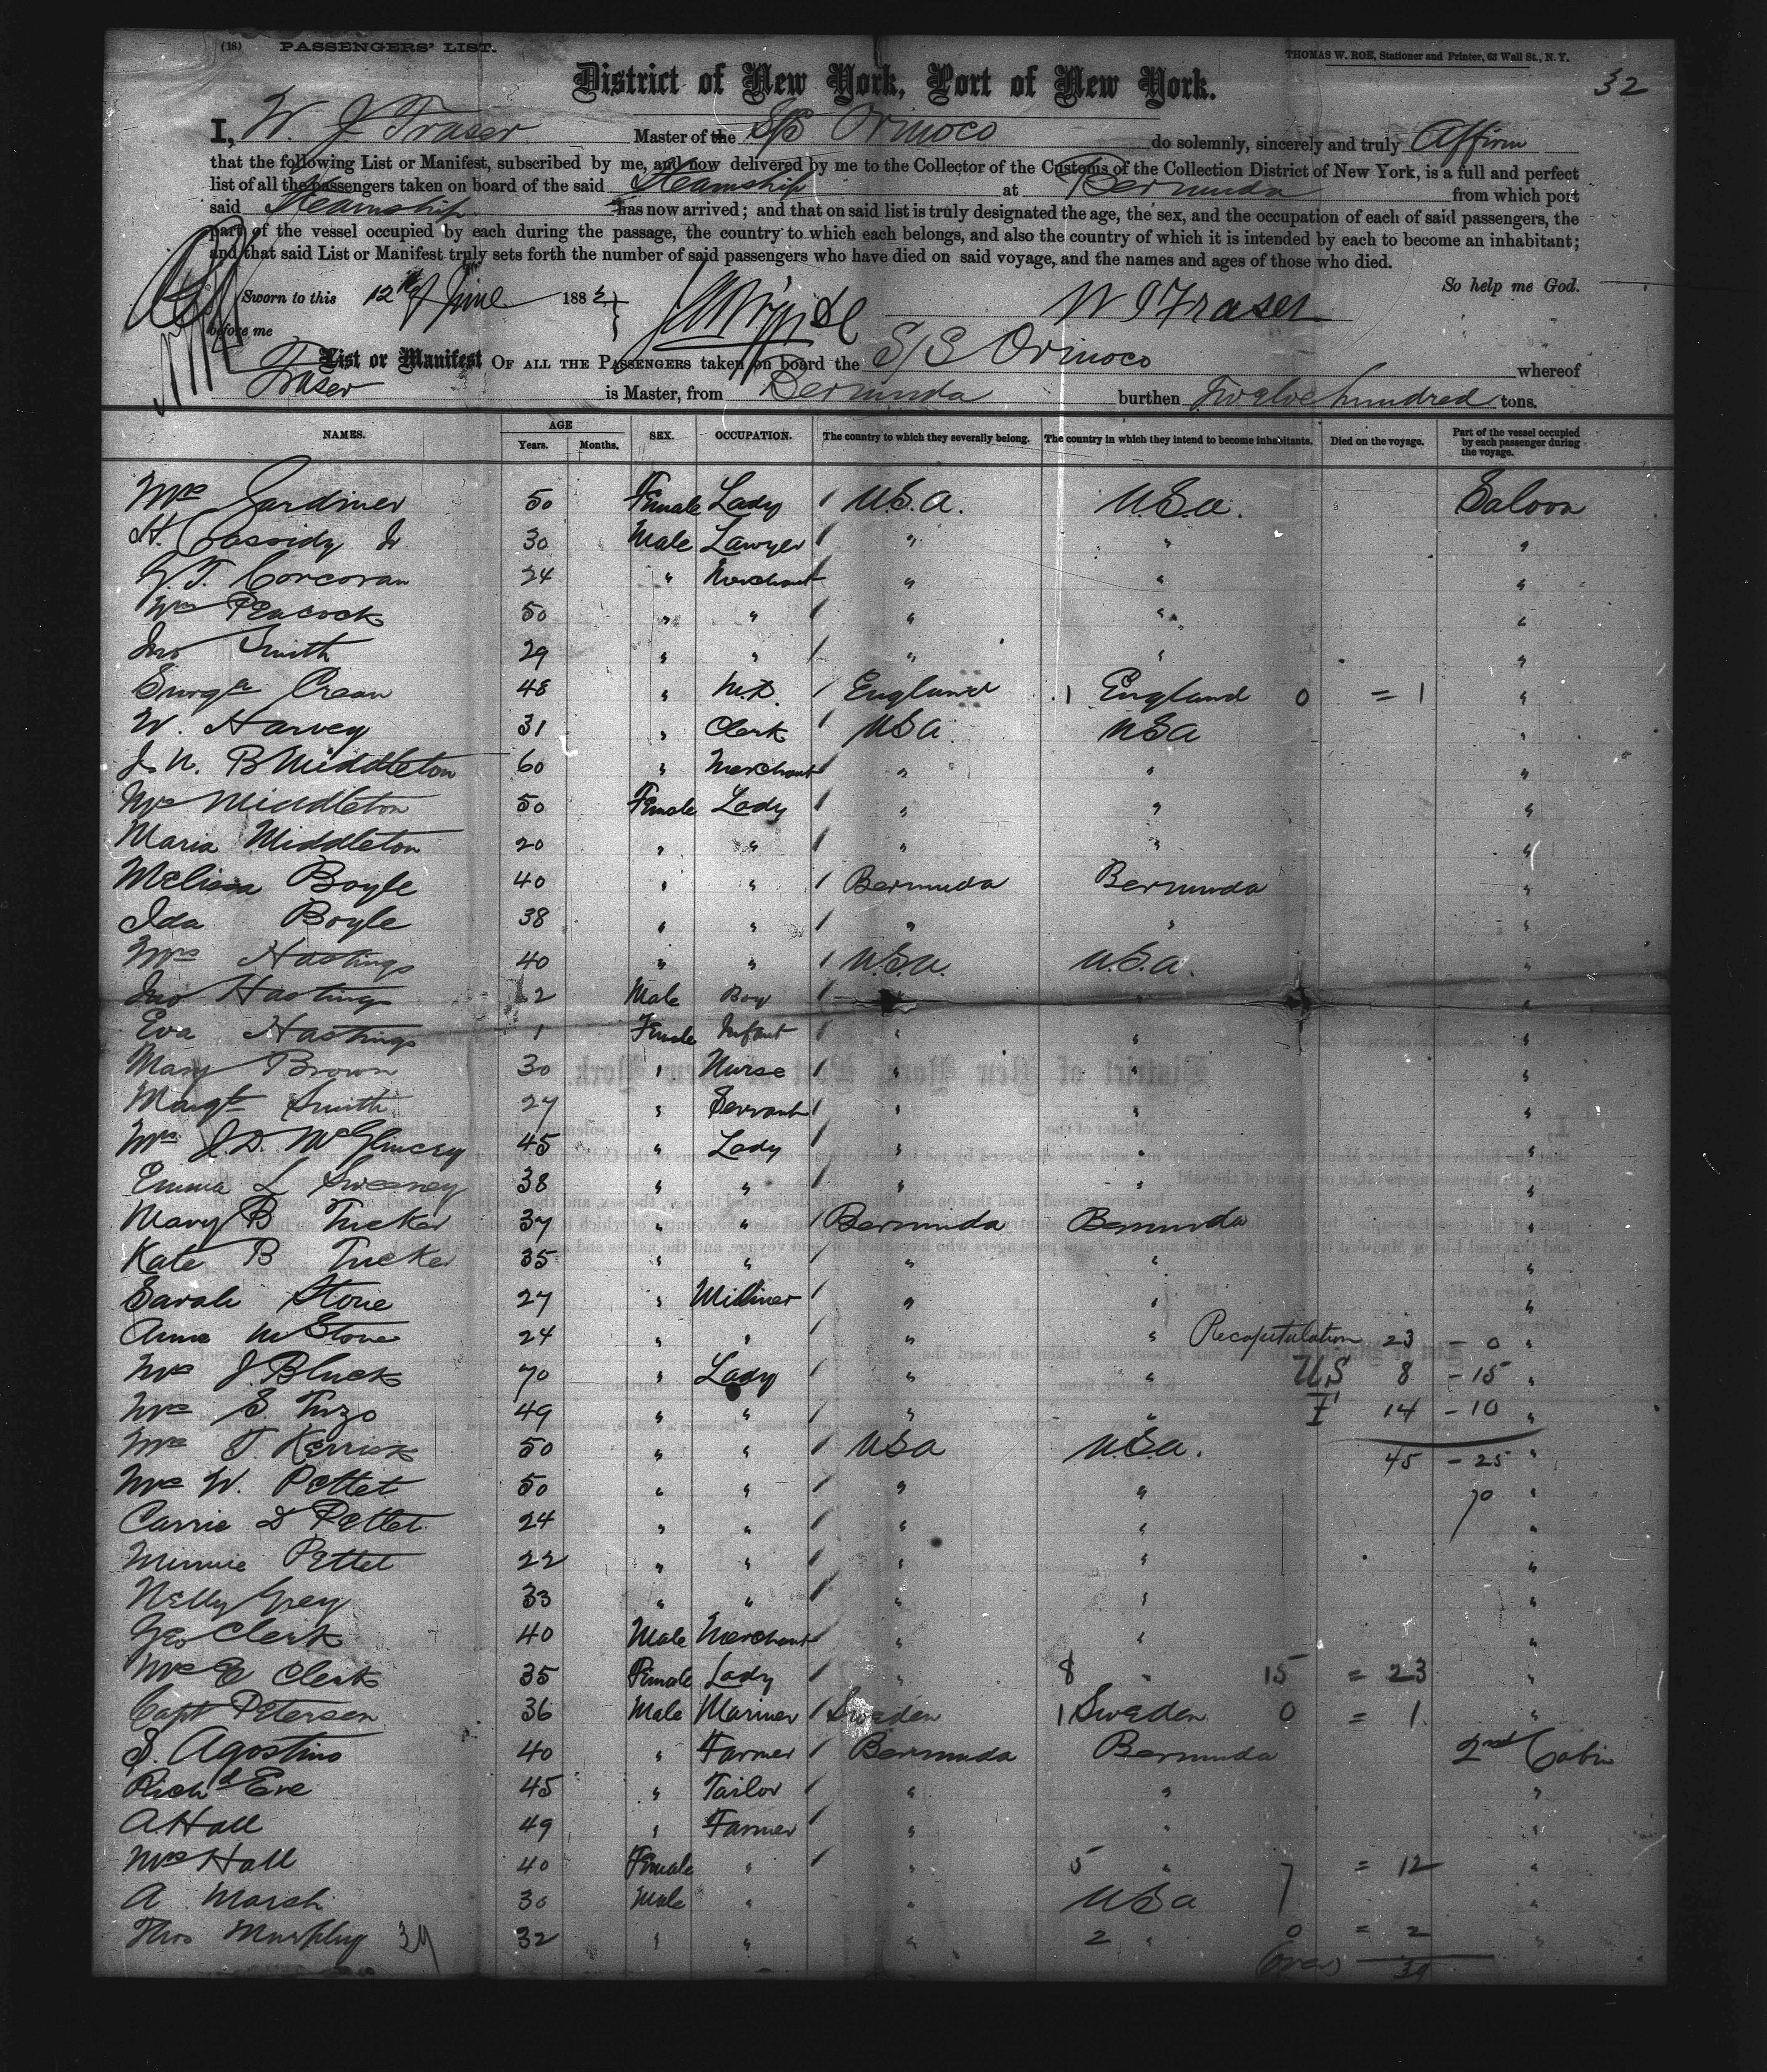 (18) PASSENGERS' LIST.
THOMAS W. ROE, Stationer and Printer, 63 Wall St., N. Y.
32
District of New York, Port of New York.
I, W. J Fraser Master of the S/S Orinoco do solemnly, sincerely and truly Affirm
that the following List or Manifest, subscribed by me, and now delivered by me to the Collector of the Customs of the Collection District of New York, is a full and perfect
list of all the passengers taken on board of the said Steamship at Bermuda from which port
said Steamship has now arrived; and that on said list is truly designated the age, the sex, and the occupation of each of said passengers, the
part of the vessel occupied by each during the passage, the country to which each belongs, and also the country of which it is intended by each to become an inhabitant;
and that said List or Manifest truly sets forth the number of said passengers who have died on said voyage, and the names and ages of those who died.
So help me God.
Sworn to this 12th of June 188
W J Fraser
before me
List or Manifest OF ALL THE PASSENGERS taken on board the S/S Orinoco whereof
Fraser is Master, from Bermuda burthen Twelve hundred tons.
NAMES. AGE Years. Months. SEX. OCCUPATION. The country to which they severally belong. The country in which they intend to become inhabitants. Died on the voyage. Part of the vessel occupied by each passenger during the voyage.
Mrs Gardiner 50 Female Lady / U.S.A. U.S.A. Saloon
H. Cassidy Jr 30 Male Lawyer / " " "
G. T. Corcoran 24 " Merchant " " "
Wm Peacock 50 " " / " " "
Jno Smith 29 " " / " " "
Surgn Crean 48 " M.D. / England 1 England 0 = 1 "
W. Harvey 31 " Clerk / USA USA "
J. N. B Middleton 60 " Merchant / " " "
Mrs Middleton 50 Female Lady / " " "
Maria Middleton 20 " " / " " "
Melissa Boyle 40 " " / Bermuda Bermuda "
Ida Boyle 38 " " / " " "
Mrs Hastings 40 " " / U.S.A. U.S.A. "
Jno Hastings 2 Male Boy / " " "
Eva Hastings 1 Female Infant / " " "
Mary Brown 30 " Nurse / " " "
Margt Smith 27 " Servant / " " "
Mrs J. D. McGlincey 45 " Lady / " " "
Emma L Sweeney 38 " " / " " "
Mary B Tucker 37 " " / Bermuda Bermuda "
Kate B Tucker 35 " " / " " "
Sarah Stone 27 " Milliner / " " "
Anne M Stone 24 " " / " " Recapitulation 23 - 0 "
Mrs J Bluck 70 " Lady / " " U.S 8 - 15 "
Mrs S. Tuzo 49 " " / " " F 14 - 10 "
Mrs T. Kerrick 50 " " / USA U.S.A. 45 - 25 "
Mrs W. Pettet 50 " " / " " 70 "
Carrie D Pettet 24 " " / " " "
Minnie Pettet 22 " " / " " "
Nelly Grey 33 " " / " " "
Geo Clerk 40 Male Merchant " " "
Mrs E Clerk 35 Female Lady / " 8 " 15 = 23 "
Capt Petersen 36 Male Mariner / Sweden 1 Sweden 0 = 1 "
S. Agostino 40 " Farmer / Bermuda Bermuda 2nd Cabin
Richd Eve 45 " Tailor / " " "
A. Hall 49 " Farmer / " " "
Mrs Hall 40 Female " / " 5 " 7 = 12 "
A Marsh 30 Male " " USA "
Thos Murphy 39 32 " " " 2 " 0 = 2 "
39